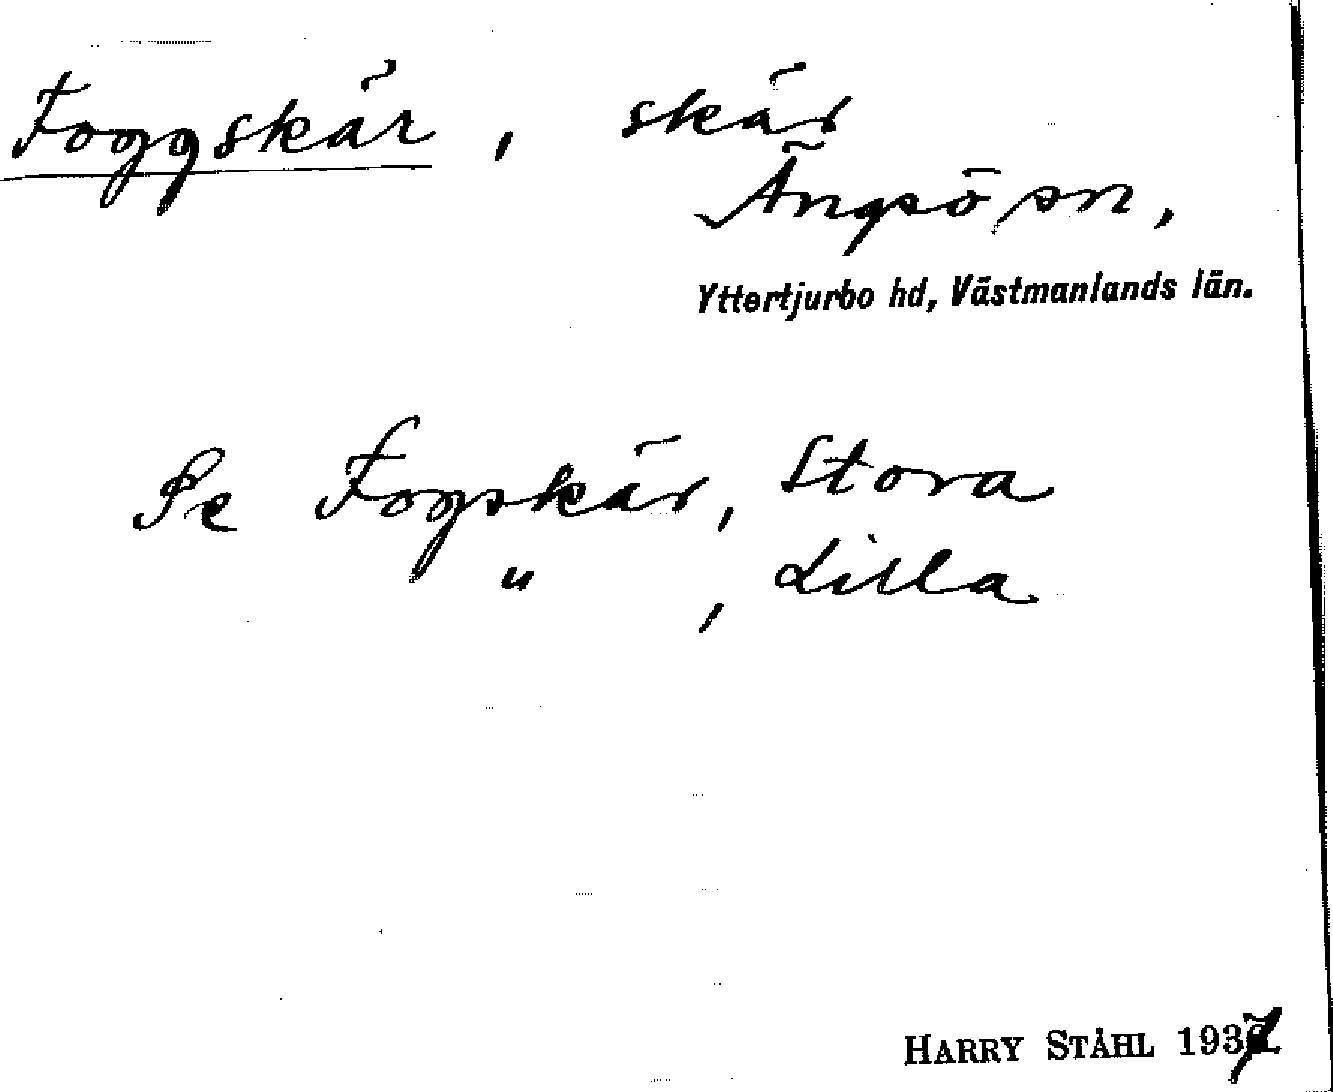 Foggskär, skär
Ängsö sn,
Yttertjurbo hd, Västmanlands län.
Se Fogskär, Stora
" , Lilla
HARRY STÅHL 1937